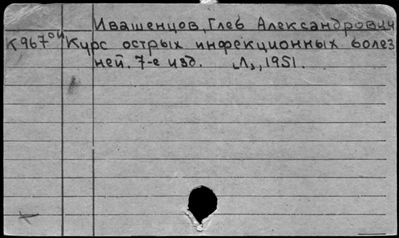 Ивашенцов, Глеб Александрович
К967ОИ Курс острых инфекционных болез
ней. 7-е изд. Л., 1951.